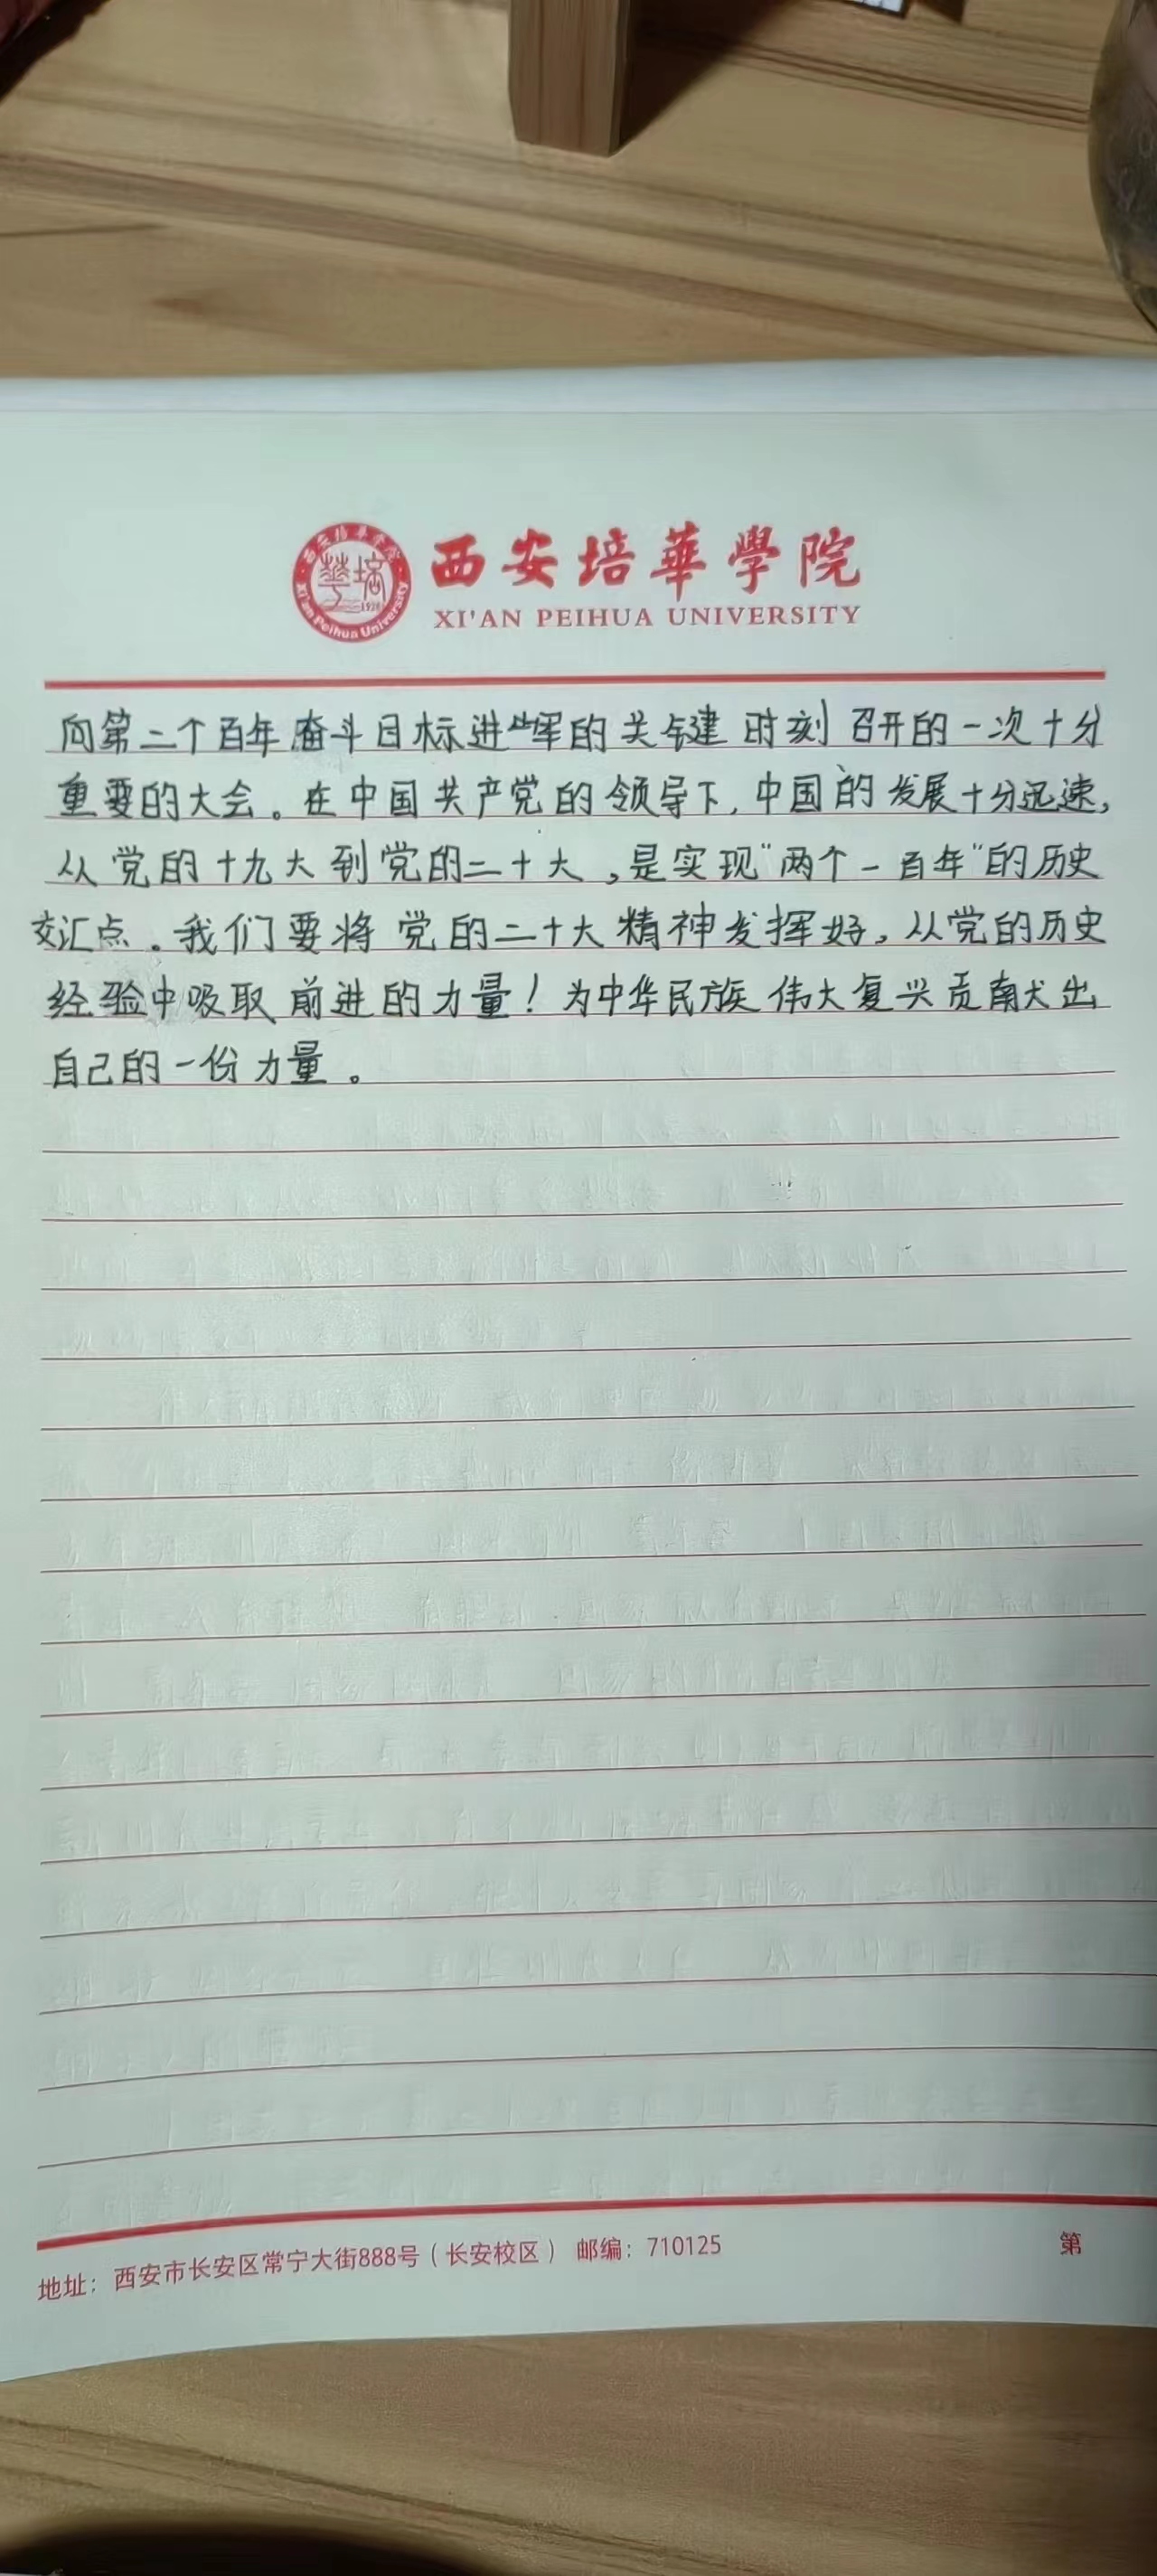 西安培華學院
XI'AN PEIHUA UNIVERSITY
向第二个百年奋斗目标进军的关键时刻召开的一次十分
重要的大会。在中国共产党的领导下,中国的发展十分迅速,
从党的十九大到党的二十大,是实现"两个一百年"的历史
交汇点。我们要将党的二十大精神发挥好,从党的历史
经验中吸取前进的力量!为中华民族伟大复兴贡献出
自己的一份力量。
地址:西安市长安区常宁大街888号(长安校区) 邮编:710125
第